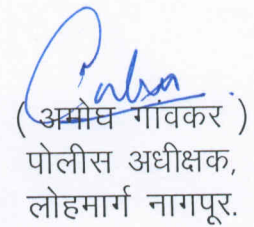 ( अमोघ गांवकर )
पोलीस अधीक्षक,
लोहमार्ग नागपूर.